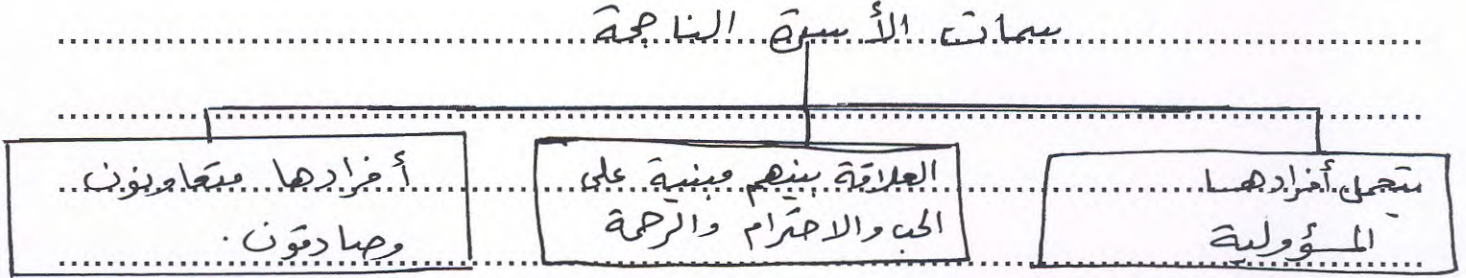 سمات الأسرة الناجحة
يتحمل أفرادها
المسؤولية
العلاقة بينهم مبنية على
الحب والاحترام والرحمة
أفرادها متعاونون
وصادقون.